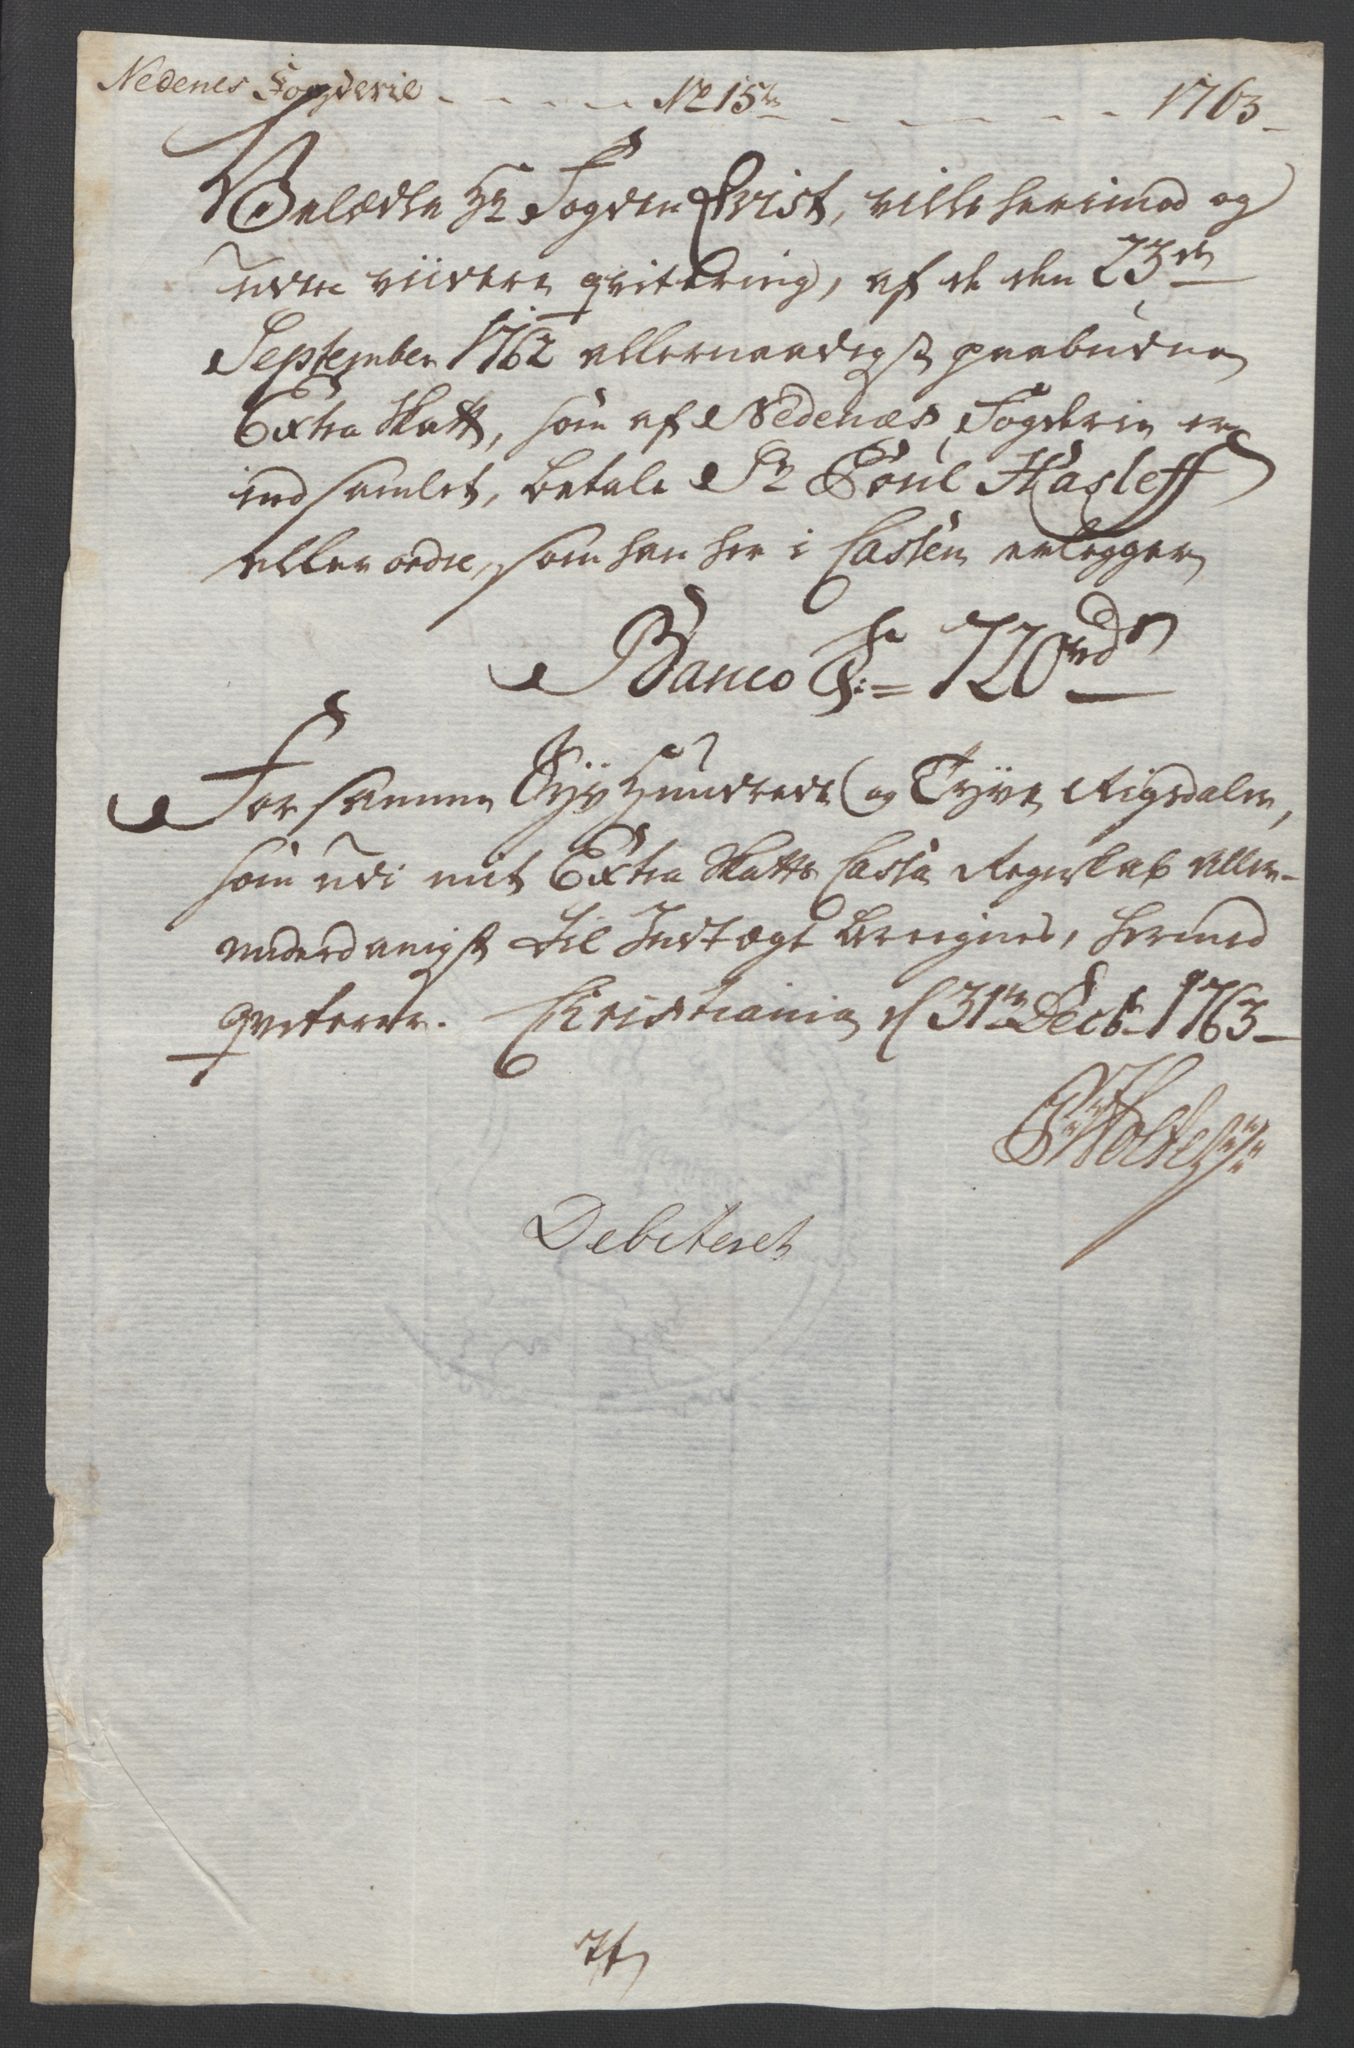 Nedenes Fogderie - - - - No 15de - - - - - 1763 -
Velædle Hr Fogden Qvist, ville herimod og
uden viidere qvitering, af de den 23de
September 1762 allernaadigst paabudne
Extra Skatt, som af Nedenæs Fogderie er
indsamlet, betale Sr Poul Hasleff
eller ordre, som han her i Cassen erlegger
Banco = 720rd
For samme Syv Hundrede og Tyve Rigsdaler,
som udi mit Extra Skatts Cassa Regnskab aller-
underdanigst til Indtægt bereignes, hermed
qviteres. Christiania d 31te Decbr 1763
Holte
Debiteret